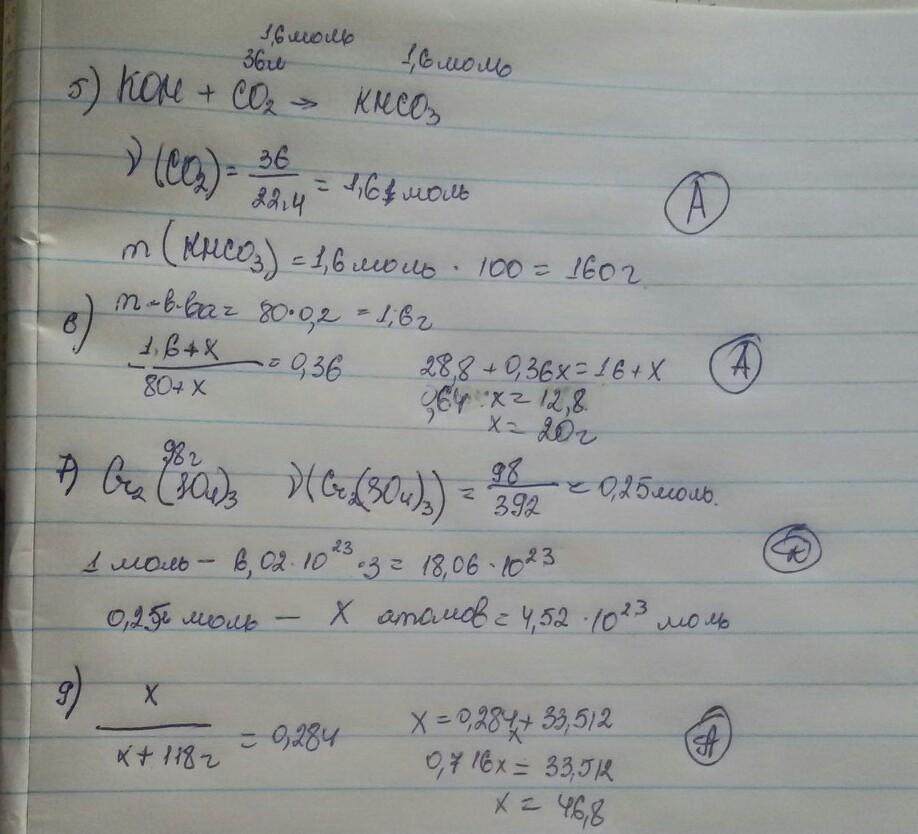 1,6моль
36л 1,6моль
5) KOH + CO₂ → KHCO₃
ν(CO₂) = 36/22,4 = 1,61моль
A
m(KHCO₃) = 1,6моль · 100 = 160г
6) m в-ва = 80·0,2 = 1,6г
1,6+x/80+x = 0,36 28,8 + 0,36x = 16 + x A
0,64 x = 12,8
x = 20г
98г
7) Cr₂(SO₄)₃ ν(Cr₂(SO₄)₃) = 98/392 = 0,25моль.
1 моль – 6,02·10²³·3 = 18,06·10²³
0,25 моль – X атомов = 4,52·10²³ моль
9) x/x+118г = 0,284 x = 0,284x + 33,512 A
0,716x = 33,512
x = 46,8